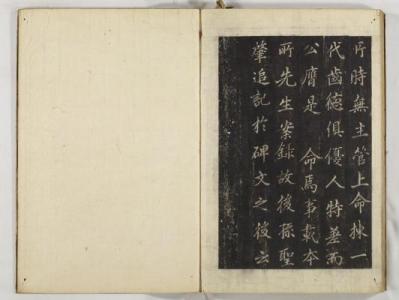 所時無主管上命揀一
代齒德俱優人特差而
公膺是 命焉事載本
所先生案錄故後孫聖
肇追記於碑文之後云